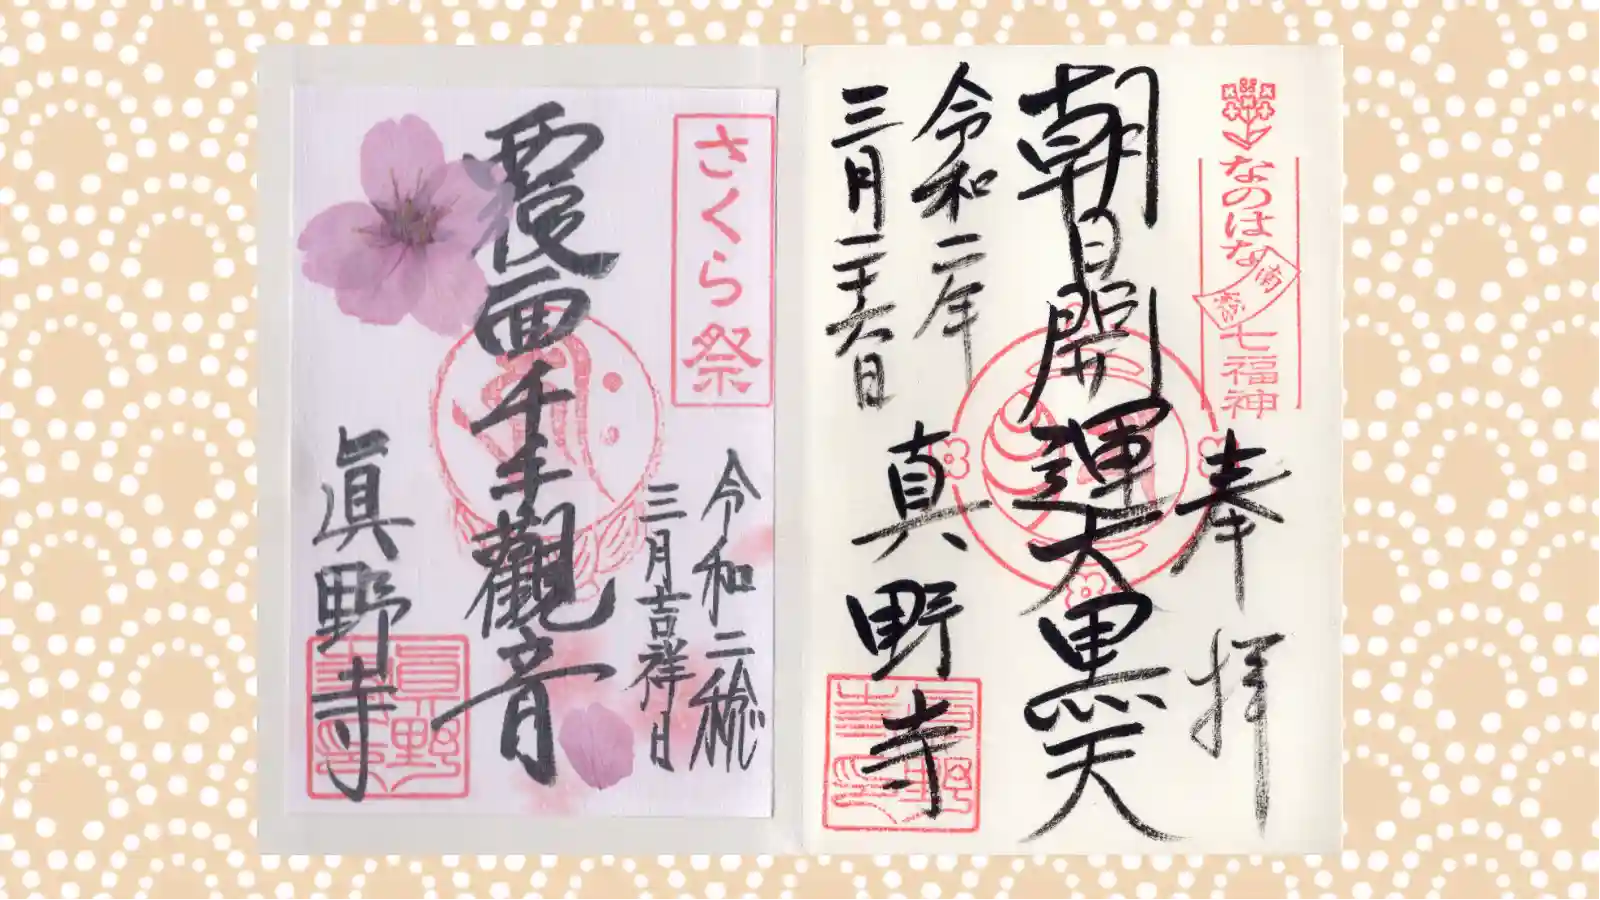 さくら祭
令和二稔
三月吉祥日
覆面千手觀音
眞野寺
なのはな
南総
七福神
奉拝
朝日開運大黒天
令和二年
三月二十六日
真野寺